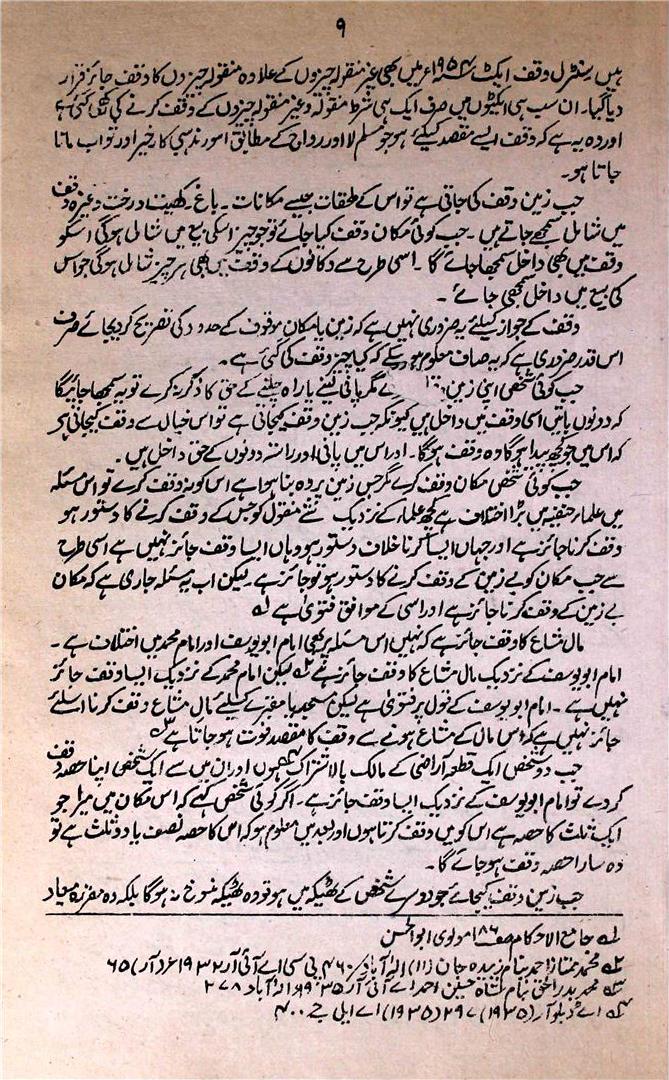 ۹
ہیں سنٹرل وقف ایکٹ ۱۹۵۴ء میں بھی غیر منقولہ چیزوں کے علاوہ منقولہ چیزوں کا وقف جائز قرار
دیا گیا۔ ان سب ہی ایکٹوں میں صرف ایک ہی شرط منقولہ وغیر منقولہ چیزوں کے وقف کرنے کی رکھی گئی ہے
اور وہ یہ ہے کہ وقف ایسے مقصد کیلئے ہو جو مسلم لا اور رواج کے مطابق امور مذہبی کار خیر اور ثواب مانا
جاتا ہو۔
جب زمین وقف کی جاتی ہے تو اس کے ملحقات جیسے مکانات۔ باغ۔ کھیت درخت وغیرہ وقف
میں شامل سمجھے جاتے ہیں۔ جب کوئی مکان وقف کیا جائے تو جو چیز اسکی بیع میں شامل ہوگی اسکو
وقف میں بھی داخل سمجھا جائے گا۔ اسی طرح سے دکانوں کے وقف میں بھی ہر چیز شامل ہوگی جو اس
کی بیع میں داخل سمجھی جائے۔
وقف کے جواز کیلئے یہ ضروری نہیں ہے کہ زمین یا مکان موقوفہ کے حدود کی تصریح کر دیجائے صرف
اس قدر ضروری ہے کہ یہ صاف معلوم ہو سکے کہ کیا چیز وقف کی گئی ہے۔
جب کوئی شخص اپنی زمین مگر پانی لینے یا راہ چلنے کے حق کا ذکر نہ کرے تو یہ سمجھا جائیگا
کہ دونوں باتیں اسی وقف میں داخل ہیں کیونکہ جب زمین وقف کیجاتی ہے تو اس خیال سے وقف کیجاتی ہے
کہ اس میں جو کچھ پیدا ہوگا وہ وقف ہوگا۔ اور اس میں پانی اور راستہ دونوں کے حق داخل ہیں۔
جب کوئی شخص مکان وقف کرے مگر جس زمین پر وہ بنا ہوا ہے اس کو نہ وقف کرے تو اس مسئلہ
میں علمائے حنفیہ میں بڑا اختلاف ہے کچھ علماء کے نزدیک شئے منقول کو جس کے وقف کرنے کا دستور ہو
وقف کرنا جائز ہے اور جہاں ایسا کرنا خلاف دستور ہو وہاں ایسا وقف جائز نہیں ہے اسی طرح
سے جب مکان کو بے زمین کے وقف کرنے کا دستور ہو تو جائز ہے۔ لیکن اب یہ مسئلہ جاری ہے کہ مکان
بے زمین کے وقف کرنا جائز ہے اور اسی کے موافق فتویٰ ہے ۱؎
مال مشاع کا وقف جائز ہے کہ نہیں اس مسئلہ پر بھی امام ابو یوسف اور امام محمد میں اختلاف ہے۔
امام ابو یوسف کے نزدیک مال مشاع کا وقف جائز ہے ۲؎ لیکن امام محمد کے نزدیک ایسا وقف جائز
نہیں ہے۔ امام ابو یوسف کے قول پر فتویٰ ہے لیکن مسجد یا مقبرے کیلئے مال مشاع وقف کرنا اسلئے
جائز نہیں ہے کہ اس مال کے مشاع ہونے سے وقف کا مقصد فوت ہو جاتا ہے ۳؎
جب دو شخص ایک قطعہ آراضی کے مالک بالاشتراک ہوں اور ان میں سے ایک شخص اپنا حصہ وقف
کر دے تو امام ابو یوسف کے نزدیک ایسا وقف جائز ہے۔ اگر کوئی شخص کہے کہ اس مکان میں میرا جو
ایک ثلث کا حصہ ہے اس کو میں وقف کرتا ہوں اور بعد میں معلوم ہو کہ اس کا حصہ نصف یا دو ثلث ہے تو
وہ سارا حصہ وقف ہو جائے گا۔
جب زمین وقف کیجائے جو دوسرے شخص کے ٹھیکہ میں ہو تو وہ ٹھیکہ منسوخ نہ ہوگا بلکہ وہ مقررہ میعاد
۱؎ جامع الاحکام صفحہ ۱۸۶ مولوی ابوالحسن
۲؎ محمد ممتاز احمد بنام زبیدہ جان (۱۱) الہ آباد ۴۶۰/ پی سی اے آئی آر ۱۹۳۲ء (آر) ۶۵
۳؎ محمد بدر الحق بنام شاہ حسین احمد اے آئی آر ۱۹۳۵ء الہ آباد ۲۷۸
۴؎ اے ڈبلو آر (۱۹۳۵) ۲۹۷ (۱۹۳۵) اے ایل جے ۴۰۰